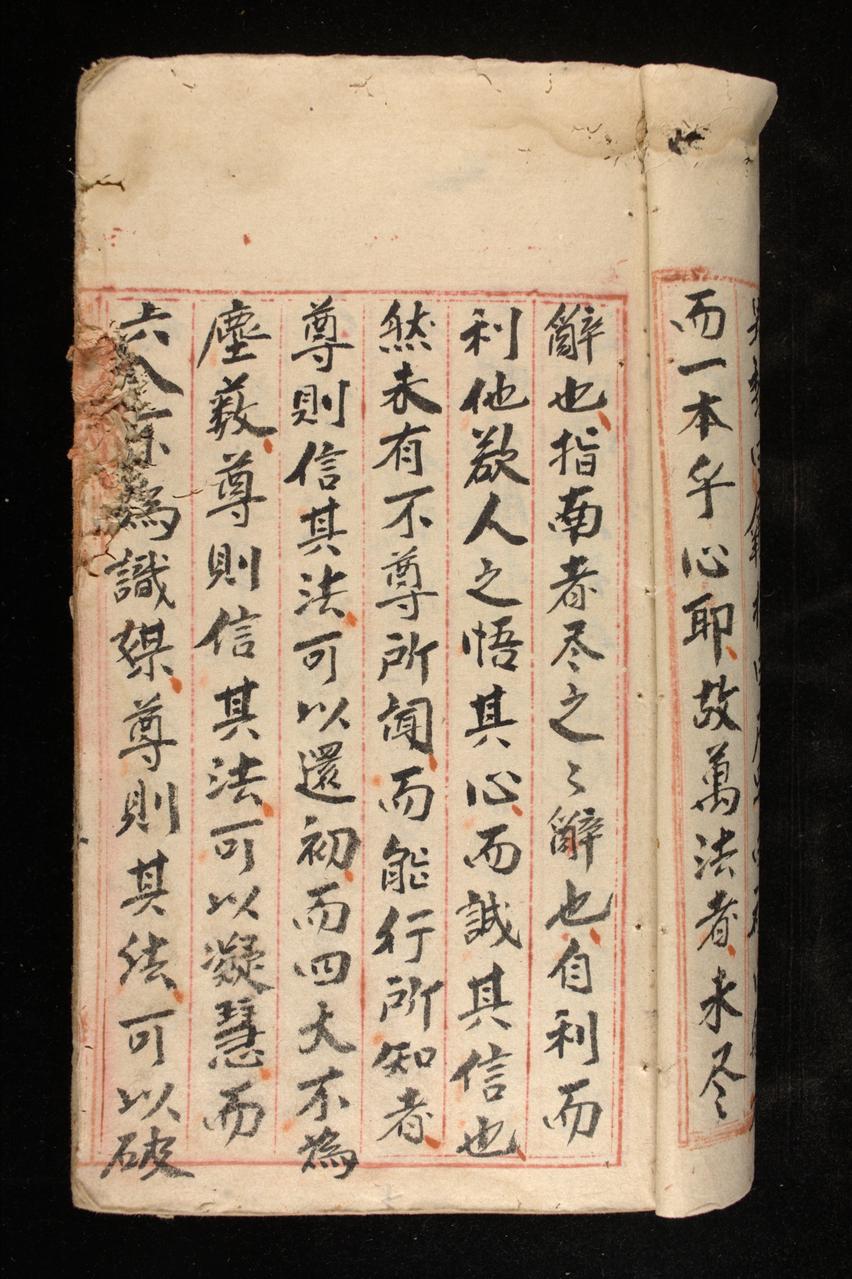 而一本乎心耶故萬法者未尽
辭也指南者尽之〻辭也自利而
利他欲人之悟其心而誠其信也
然未有不尊所闻而能行所知者
尊則信其法可以還初而四大不為
塵薮尊則信其法可以凝慧而
六為識媒尊則其法可以破